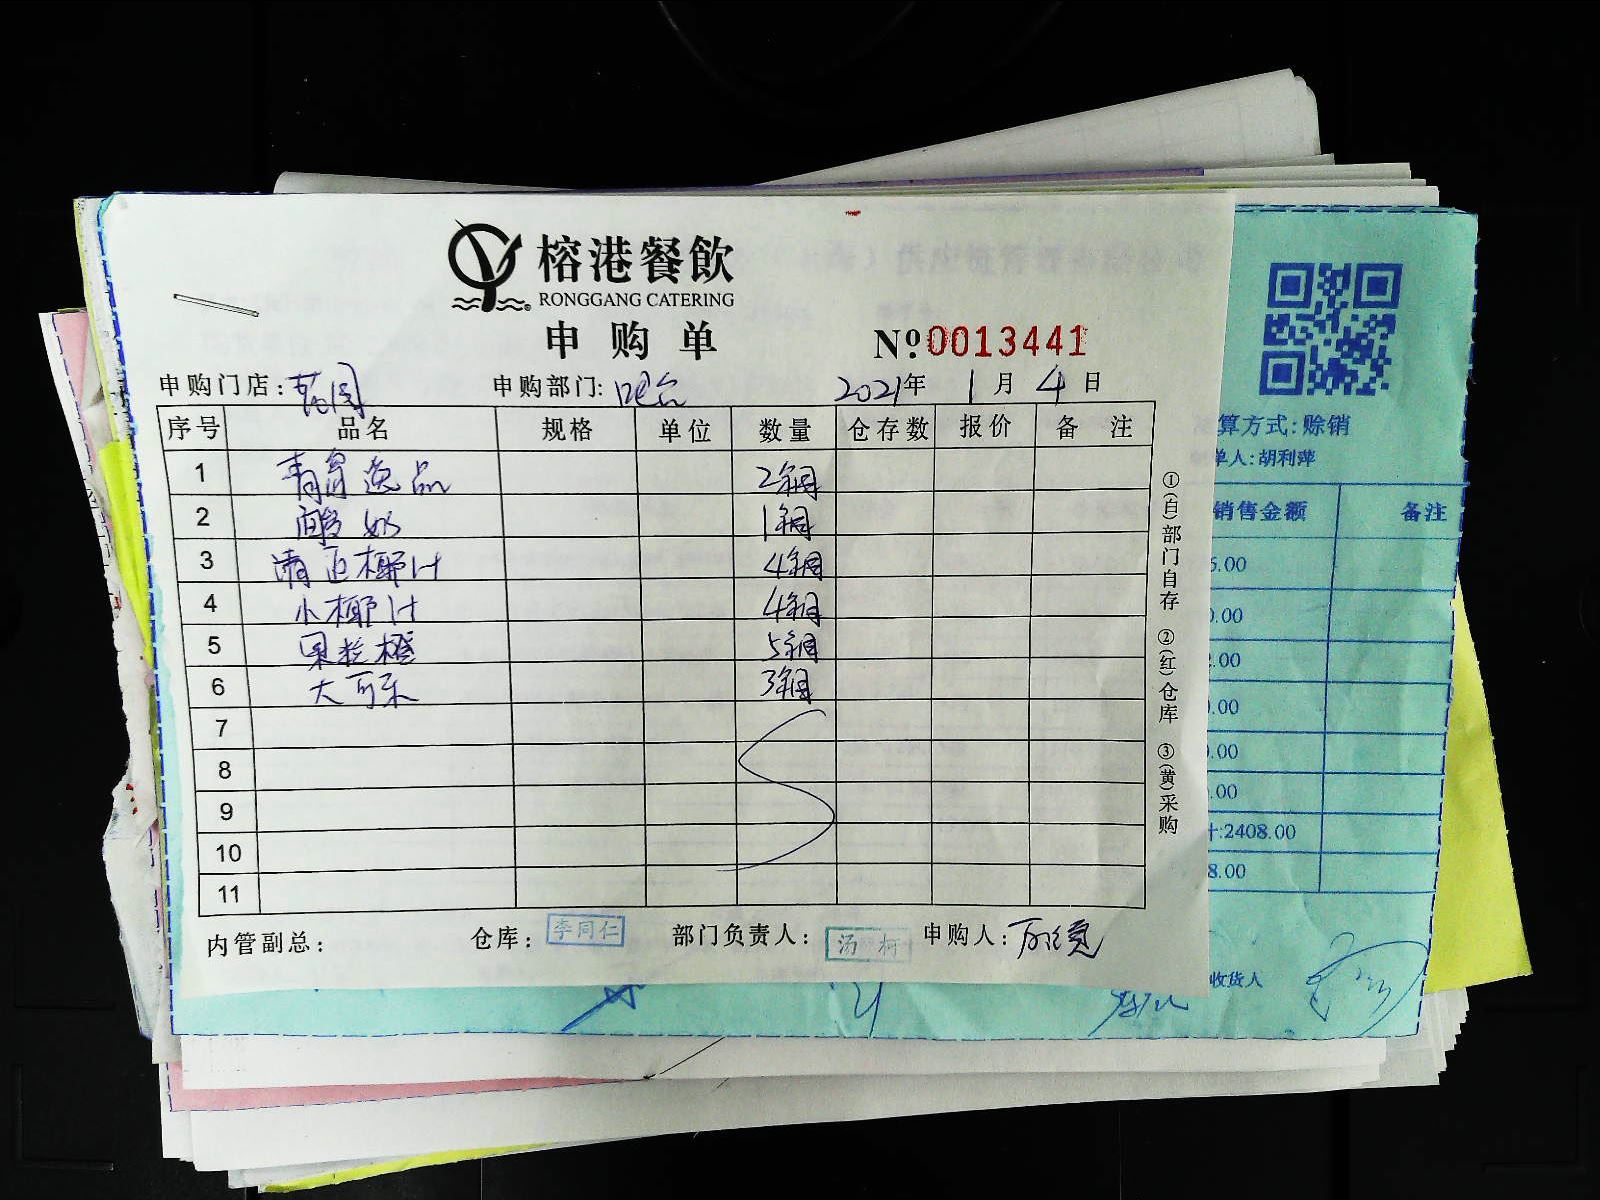 榕港餐飲
RONGGANG CATERING
申购单
№0013441
申购门店:药园 申购部门:吧台 2021年1月4日
序号 品名 规格 单位 数量 仓存数 报价 备注
1 青岛逸品 2箱
2 酸奶 1箱
3 清正椰汁 4箱
4 小椰汁 4箱
5 果粒橙 5箱
6 大可乐 3箱
7
8
9
10
11
内管副总: 仓库:李同仁 部门负责人:汤柯 申购人:
①(白)部门自存 ②(红)仓库 ③(黄)采购
算方式:赊销
单人:胡利萍
销售金额 备注
5.00
0.00
2.00
0.00
0.00
.00
计:2408.00
8.00
收货人